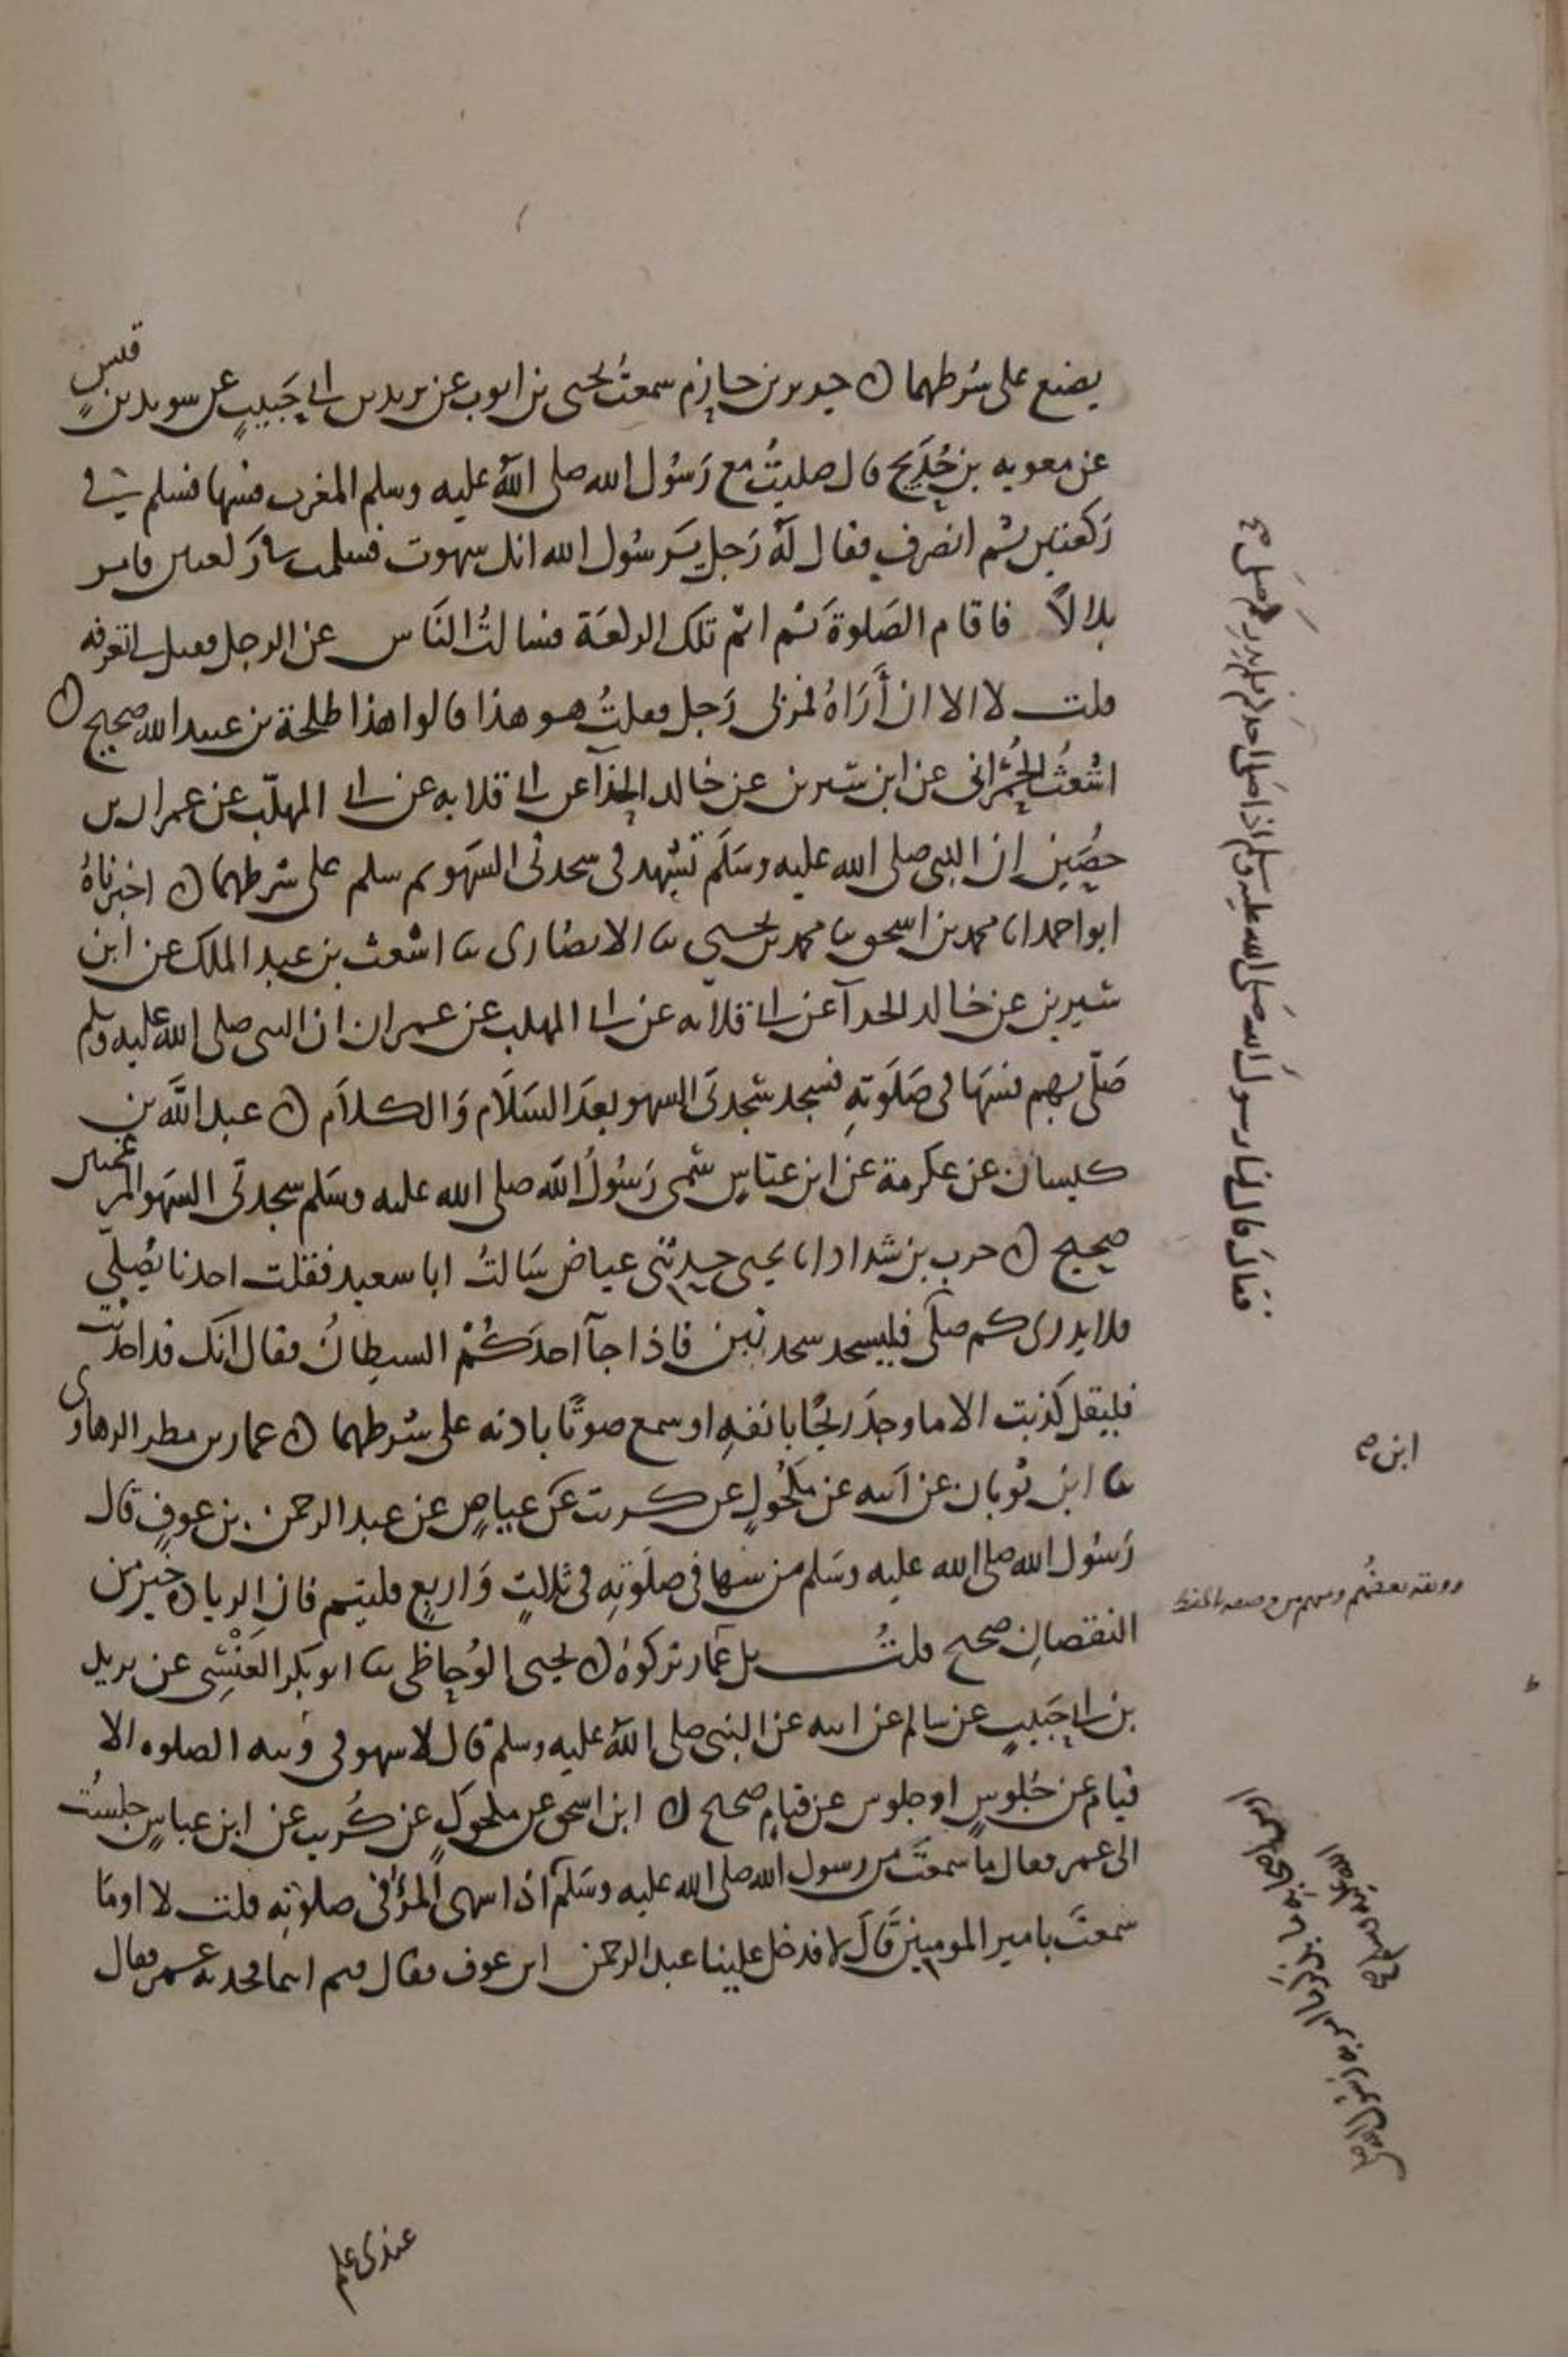 يصنع على شرطهما ن جرير بن حازم سمعت يحيى بن ايوب عن يزيد بن ابي حَبيبٍ عن سويد بن قيس
عن معويه بن حُدَيج قال صليتُ مع رَسُول الله صلى اللهُ عليه وسلم المغرب فسها فسلم في
رَكعتين ثم انصرف فقال لهُ رَجل يرَسُول الله انك سهوت فسلمت في ركعتين فامر
بلالاً فاقام الصَلوةَ ثم اتم تلك الركعَة فسالتُ النَاس عن الرجل فقيل لي اتعرفه
قلت لا الا ان أَرَاهُ فمر بي رَجل فقلتُ هو هذا قالوا هذا طلحة بن عبيد الله صحيح ن
اشعثُ الحُمْراني عن ابن سيرين عن خالد الحذآ عن ابي قلابه عن ابي المهلّب عن عمران بن
حصَين ان النبي صلى الله عليه وسَلّم تشهد في سجدتى السَهو ثم سلم على شرطهما ن اخبرناهُ
ابو احمد انا محمد بن اسحق ثنا محمد بن يحيى ثنا الانصَارى ثنا اشعث بن عبد الملك عن ابن
سيرين عن خالد الحذآ عن ابي قلابه عن ابي المهلب عن عمران ان النبي صلى الله عليه وسلم
صَلّى بهم فسَهَا في صَلَوتهِ فسجد سَجدتَى السهو بعدَ السَلَام وَالكلاَم ن عبد الله بن
كيسان عن عكرمة عن ابن عبّاسٍ سَمى رَسُولُ الله صلى الله عليه وسَلم سجدتَى السَهو المرغمتين
صحيح ن حرب بن شداد انا يحيى حدثنى عياض سَالتُ ابا سعيد فقلت احدنا يُصَلّي
فلا يدرى كم صلّى فليسجد سجدتين فاذا جآ احدَكُمْ الشيطانُ فقال انك قد احدثت
فليقل كذبت الا ما وجدَ ريحًا بانفهِ او سمع صوتًا باذنه على شرطهما ن عمار بن مطر الرهاوى
ثنا ابن ثوبان عن ابيه عن مكحُولٍ عن كريب عن عياض عن عبد الرحمن بن عوفٍ قال
رَسُول الله صلى الله عليه وسَلم من سها في صلَوتِهِ في ثلاثٍ وَاربعٍ فليتم فان الزيادة خير من
النقصانِ صحيح قلتُ بل عمار تركوهُ ن يحيى الوُحاظي ثنا ابو بكر العَنْسِي عن يزيد
بن ابي حَبيبٍ عن سالم عن ابيه عن النبي صلى اللهُ عليه وسلم قال لا سهو في وثبه الصلوه الا
قيام عن جُلوسٍ او جلوس عن قيامٍ صحيح ن ابن اسحق عن مكحولٍ عن كُريب عن ابن عباسٍ جلستُ
الى عمر فقال ما سمعتَ من رسول الله صلى الله عليه وسَلم اذا سهى المرؤ في صلوته قلت لا او ما
سمعتَ يا امير المومنين قَالَ لا فدخل علينا عبد الرحمن ابن عوف فقال فيم انتما فحدثه عمر فقال
عندى علم
فقالَ قال لنا رسولُ الله صلى الله عليه وسلم اذا صلى احدكم فلم يدرِ كم صلى
ابن صح
ووثقه بعضُهم ومنهم من وصفه بالحفظ